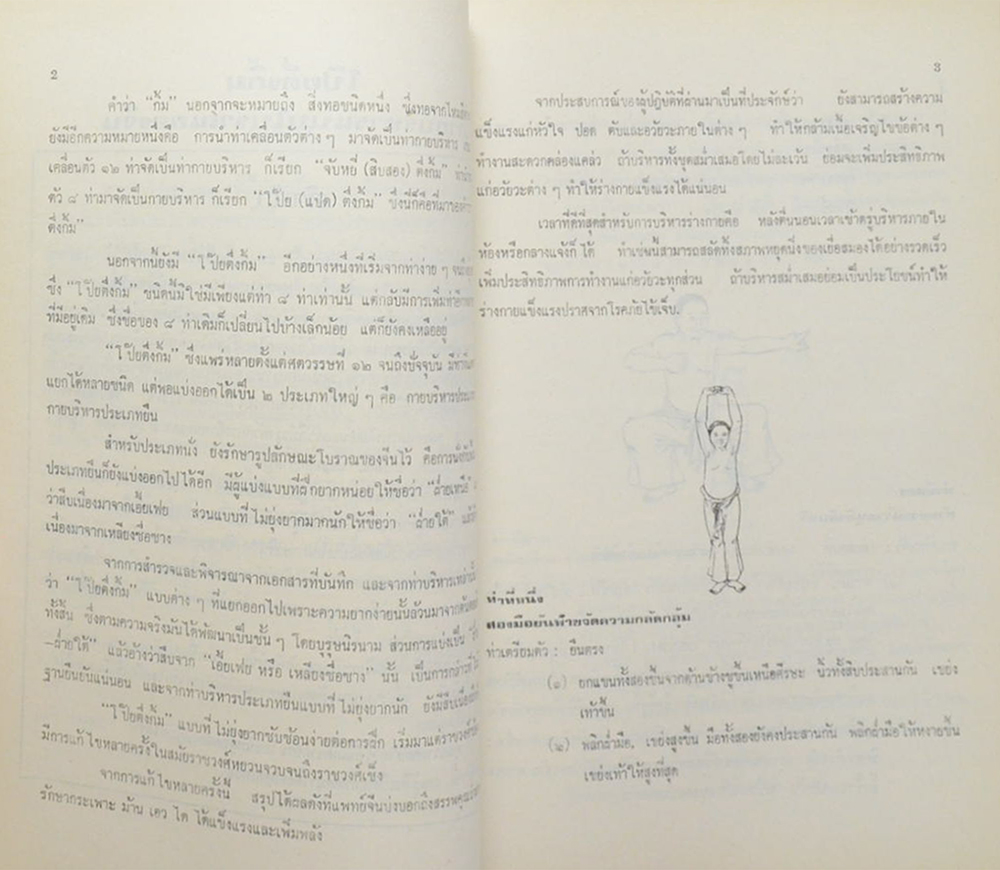 2
คำว่า "กิ้ม" นอกจากจะหมายถึง สิ่งทอชนิดหนึ่ง ซึ่งทอจากไหม
ยังมีอีกความหมายหนึ่งคือ การนำท่าเคลื่อนตัวต่าง ๆ มาจัดเป็นท่ากายบริหาร
เคลื่อนตัว ๑๒ ท่าจัดเป็นท่ากายบริหาร ก็เรียก "จับหยี่ (สิบสอง) ตึ่งกิ้ม"
ตัว ๘ ท่ามาจัดเป็นกายบริหาร ก็เรียก "โป๊ย (แปด) ตึ่งกิ้ม" ซึ่งนี่ก็คือที่มาของ
ตึ่งกิ้ม"
นอกจากนี้ยังมี "โป๊ยตึ่งกิ้ม" อีกอย่างหนึ่งที่เริ่มจากท่าง่าย ๆ
ซึ่ง "โป๊ยตึ่งกิ้ม" ชนิดนี้มิใช่มีเพียงแต่ท่า ๘ ท่าเท่านั้น แต่กลับมีการเพิ่ม
ที่มีอยู่เดิม ซึ่งชื่อของ ๘ ท่าเดิมก็เปลี่ยนไปบ้างเล็กน้อย แต่ก็ยังคงเหลืออยู่
"โป๊ยตึ่งกิ้ม" ซึ่งแพร่หลายตั้งแต่ศตวรรษที่ ๑๒ จนถึงปัจจุบัน
แยกได้หลายชนิด แต่พอแบ่งออกได้เป็น ๒ ประเภทใหญ่ ๆ คือ กายบริหารประเภท
กายบริหารประเภทยืน
สำหรับประเภทนั่ง ยังรักษารูปลักษณะโบราณของจีนไว้ คือการนั่ง
ประเภทยืนก็ยังแบ่งออกไปได้อีก มีผู้แบ่งแบบที่ฝึกยากหน่อยให้ชื่อว่า "ฝ่ายเหนือ"
ว่าสืบเนื่องมาจากเอี้ยเฟย ส่วนแบบที่ไม่ยุ่งยากมากนักให้ชื่อว่า "ฝ่ายใต้"
เนื่องมาจากเหลียงซื่อชาง
จากการสำรวจและพิจารณาจากเอกสารที่บันทึก และจากท่าบริหารเหล่านี้
ว่า "โป๊ยตึ่งกิ้ม" แบบต่าง ๆ ที่แยกออกไปเพราะความยากง่ายนั้นล้วนมาจาก
ทั้งสิ้น ซึ่งตามความจริงมันได้พัฒนาเป็นชั้น ๆ โดยบุรุษนิรนาม ส่วนการแบ่งเป็น
–ฝ่ายใต้" แล้วอ้างว่าสืบจาก "เอี้ยเฟย หรือ เหลียงซื่อชาง" นั้น เป็นการกล่าวที่
ฐานยืนยันแน่นอน และจากท่าบริหารประเภทยืนแบบที่ไม่ยุ่งยากนัก ยังมีสืบเนื่อง
"โป๊ยตึ่งกิ้ม" แบบที่ไม่ยุ่งยากซับซ้อนง่ายต่อการฝึก เริ่มมาแต่ราชวงศ์
มีการแก้ไขหลายครั้งในสมัยราชวงศ์หยวนจวบจนถึงราชวงศ์เช็ง
จากการแก้ไขหลายครั้งนี้ สรุปได้ผลดังที่แพทย์จีนบ่งบอกถึงสรรพคุณ
รักษากระเพาะ ม้าม เอว ไต ได้แข็งแรงและเพิ่มพลัง
3
จากประสบการณ์ของผู้ปฏิบัติที่ผ่านมาเป็นที่ประจักษ์ว่า ยังสามารถสร้างความ
แข็งแรงแก่หัวใจ ปอด ตับและอวัยวะภายในต่าง ๆ ทำให้กล้ามเนื้อเจริญไขข้อต่าง ๆ
ทำงานสะดวกคล่องแคล่ว ถ้าบริหารทั้งชุดสม่ำเสมอโดยไม่ละเว้น ย่อมจะเพิ่มประสิทธิภาพ
แก่อวัยวะต่าง ๆ ทำให้ร่างกายแข็งแรงได้แน่นอน
เวลาที่ดีที่สุดสำหรับการบริหารร่างกายคือ หลังตื่นนอนเวลาเช้าตรู่บริหารภายใน
ห้องหรือกลางแจ้งก็ได้ ทำเช่นนี้สามารถสลัดทิ้งสภาพหยุดนิ่งของเยื่อสมองได้อย่างรวดเร็ว
เพิ่มประสิทธิภาพการทำงานแก่อวัยวะทุกส่วน ถ้าบริหารสม่ำเสมอย่อมเป็นประโยชน์ทำให้
ร่างกายแข็งแรงปราศจากโรคภัยไข้เจ็บ.
ท่าที่หนึ่ง
สองมือยันฟ้าขจัดความกลัดกลุ้ม
ท่าเตรียมตัว : ยืนตรง
(๑) ยกแขนทั้งสองขึ้นจากด้านข้างชูขึ้นเหนือศีรษะ นิ้วทั้งสิบประสานกัน เขย่ง
เท้าขึ้น
(๒) พลิกฝ่ามือ, เขย่งสูงขึ้น มือทั้งสองยังคงประสานกัน พลิกฝ่ามือให้หงายขึ้น
เขย่งเท้าให้สูงที่สุด